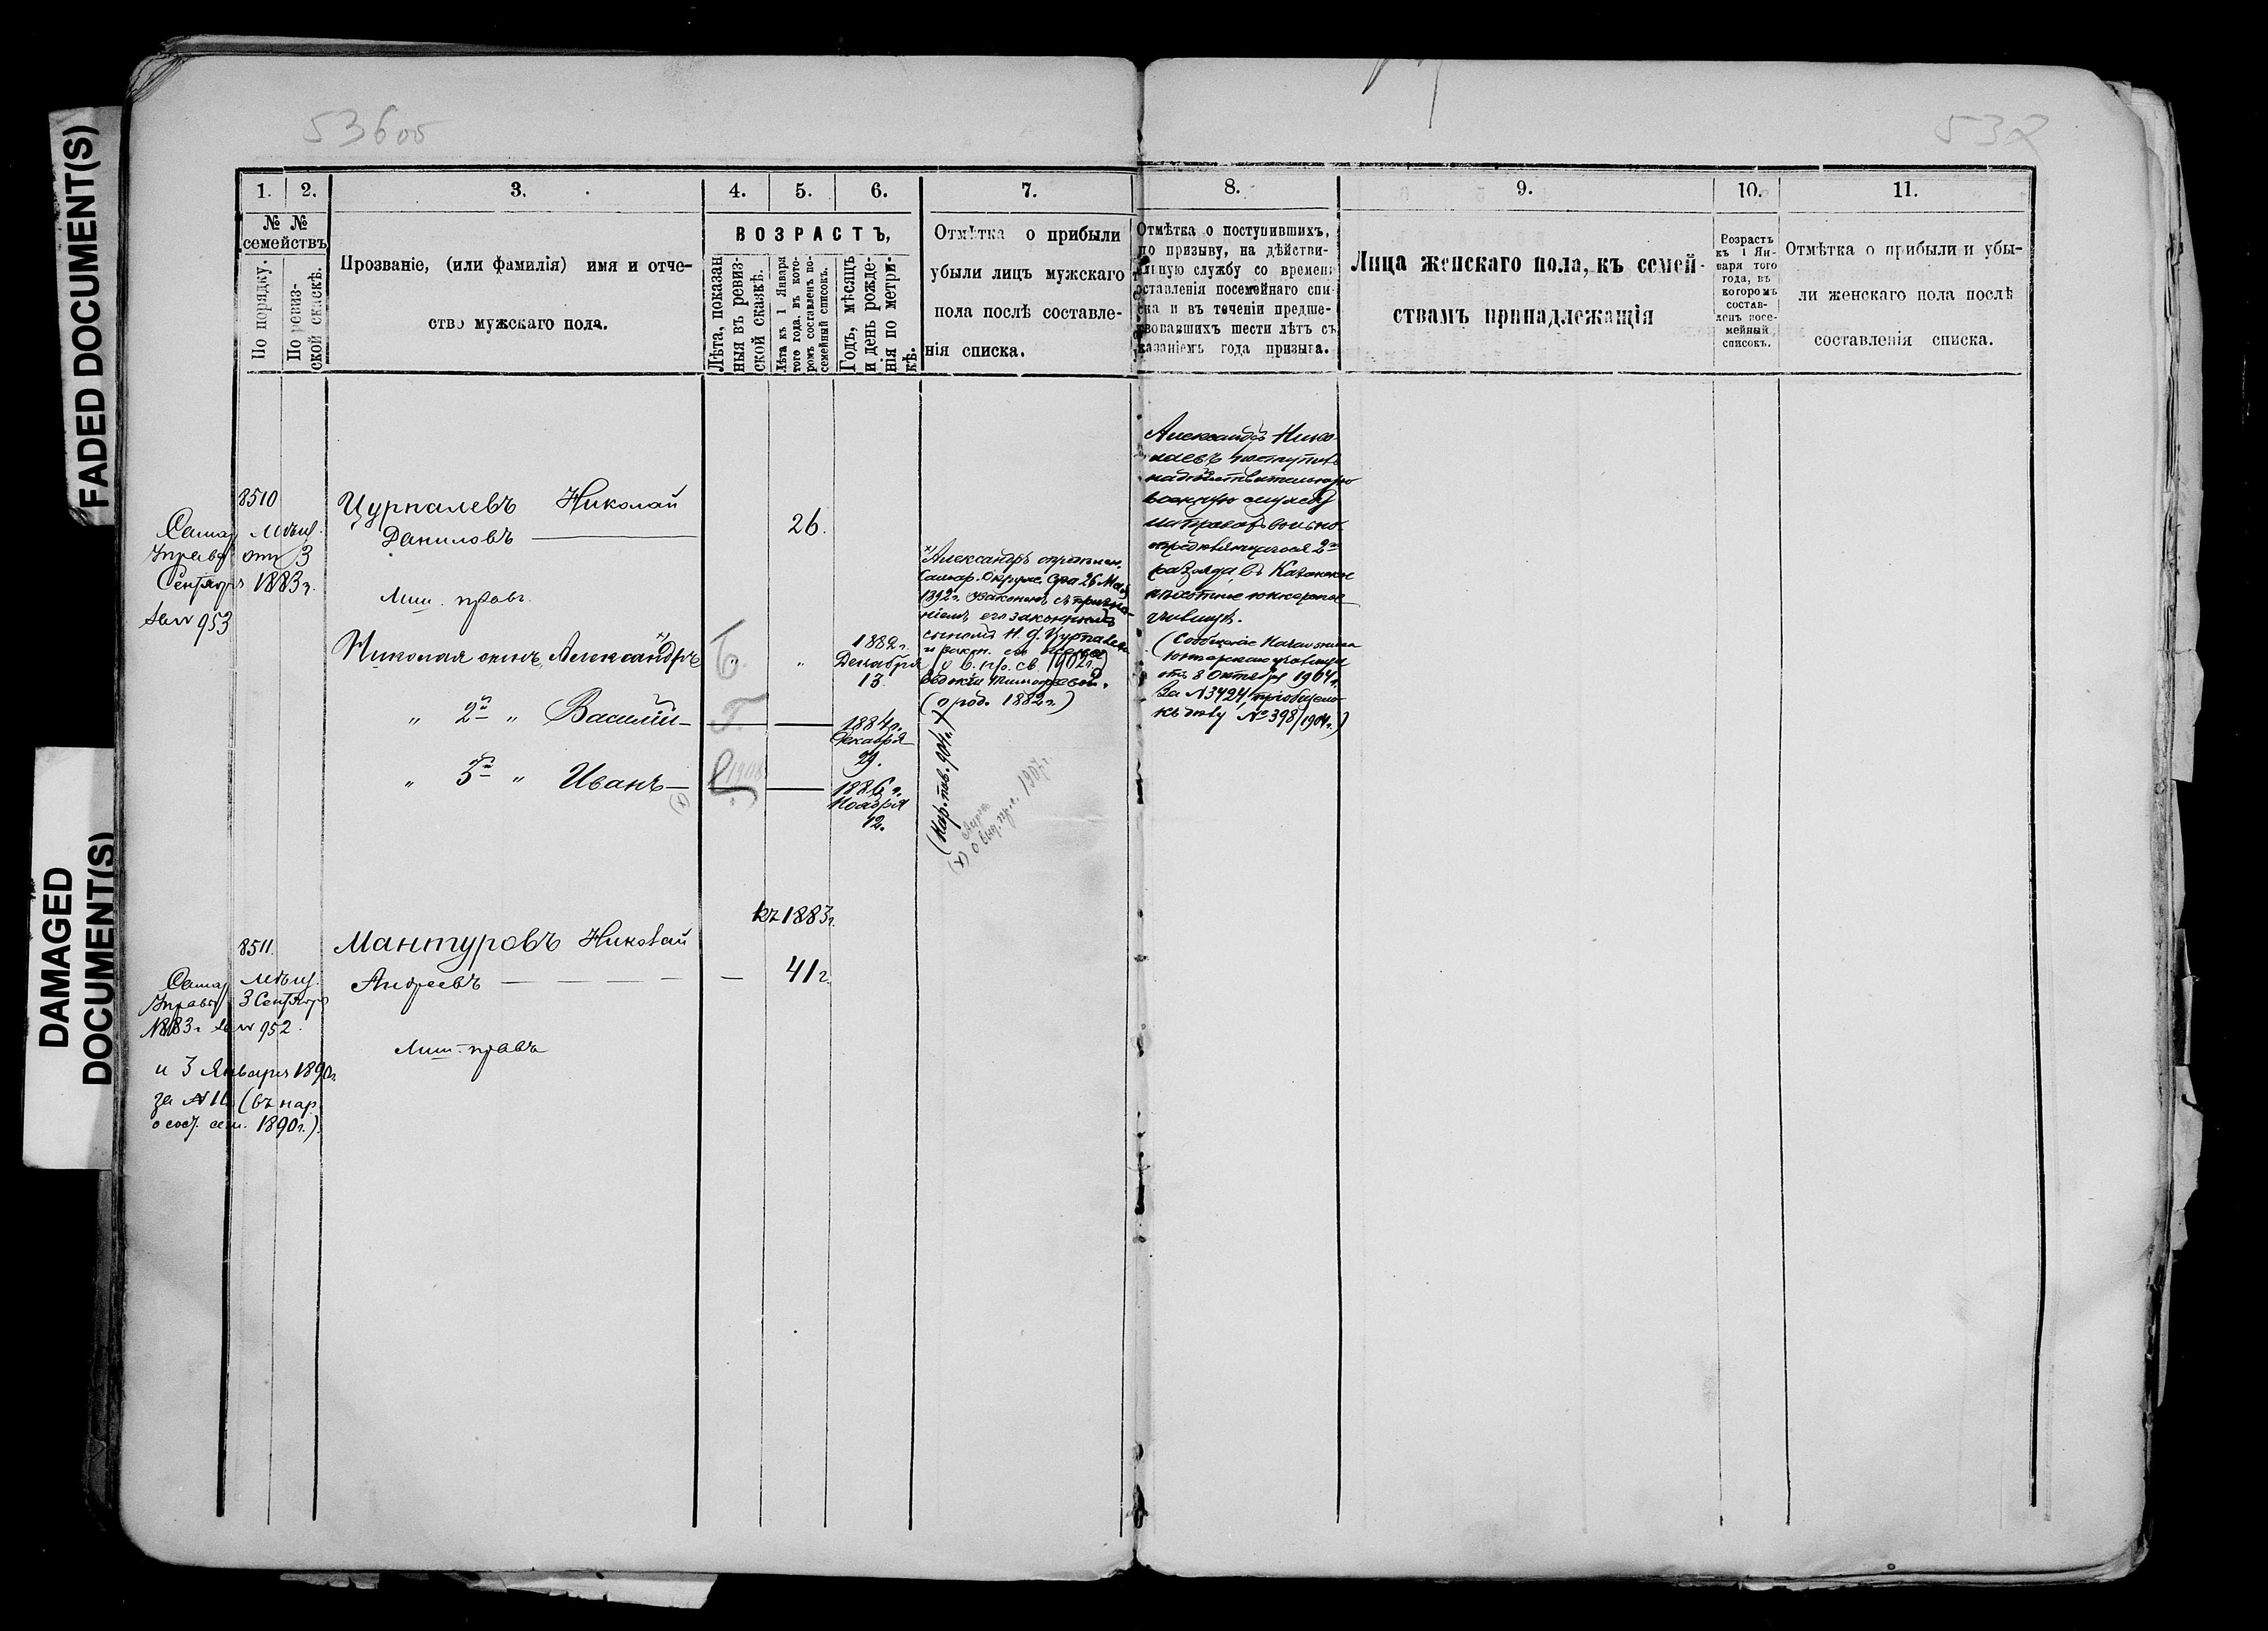 FADED DOCUMENT(S)
DAMAGED DOCUMENT(S)
536 об
532
1.
2.
3.
4.
5.
6.
7.
8.
9.
10.
11.
№ №
семействъ
По порядку.
По ревиз-
ской сказкѣ.
Прозваніе, (или фамилія) имя и отче-
ство мужскаго пола.
ВОЗРАСТЪ,
Лѣта, показан
ныя въ ревиз-
ской сказкѣ.
Лѣта къ 1 Января
того года, въ кото-
ромъ составленъ по-
семейный списокъ.
Годъ, мѣсяцъ
и день рожде-
нія по метри-
кѣ.
Отмѣтка о прибыли
убыли лицъ мужскаго
пола послѣ составле-
нія списка.
Отмѣтка о поступившихъ,
по призыву, на дѣйстви-
льную службу со времени
оставленія посемейнаго спи-
ска и въ теченіи предше-
твовавшихъ шести лѣтъ съ
казаніемъ года призыва.
Лица женскаго пола, къ семей-
ствамъ принадлежащія
Возрастъ
къ 1 Ян-
варя того
года, въ
которомъ
состав-
ленъ посе-
мейный
списокъ.
Отмѣтка о прибыли и убы-
ли женскаго пола послѣ
составленія списка.
8510
Самар Мѣщ.
Управ отъ 3
Сентября 1883 г.
за № 953
Цурпалевъ Николай
Даниловъ
26.
Миш. правъ.
Николая сынъ, Александръ
" " 
1882 г.
Декабря
13.
" 2й " Василій
1884 г.
Декабря
29.
" 3й " Иванъ
(х)
1908
1886 г.
Ноября
12.
х) Александръ опредѣлен.
Самар. Окруж. Суда 26 Мая
1892 г. узаконенъ съ призна-
ніемъ его законнымъ
сыномъ Н. Д. Цурпалева
и закон. его жены
(о в. пр. св 1902 г.)
Евдокіи Тимофеевой.
(о род. 1882 г.)
(Нар. пов. 904 г.)
(х) о выд. пр. с. 1907 г.
Александръ Нико-
лаевъ поступилъ
на дѣйствительную
военную службу
на правахъ вольно-
опредѣляющагося 2го
разряда, въ Казанское
пѣхотное юнкерское
училище.
(Сообщеніе Начальника
юнкерскаго училища
отъ 8 Октября 1904 г.
за № 3424, пріобщено
къ дѣлу № 398/1904 г.)
къ 1883 г.
8511.
Самар Мѣщ.
Управ 3 Сентября
1883 г. за № 952.
и 3 Января 1890 г.
за № 11 (въ нар.
о сост. сем. 1890 г.)
Мантуровъ Николай
Андреевъ
41 г.
Миш. правъ